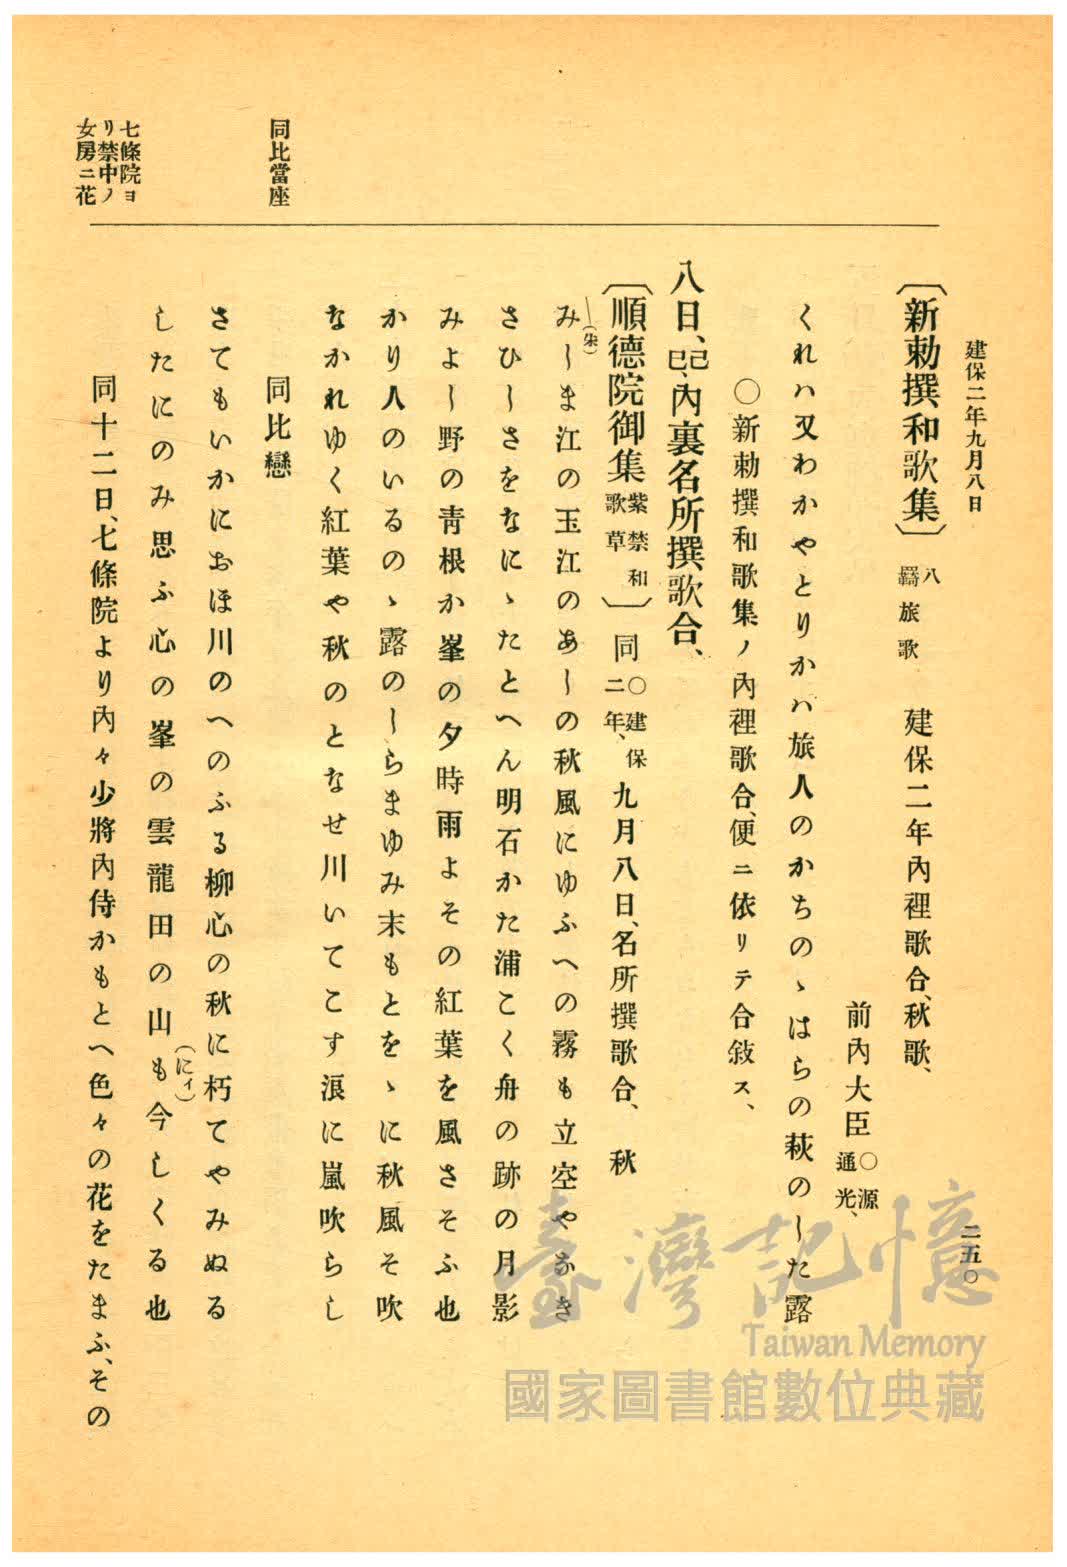 建保二年九月八日
二五〇
〔新勅撰和歌集〕八 羇旅歌 建保二年內裡歌合、秋歌、
前內大臣〇源通光、
くれハ又わかやとりかハ旅人のかちのゝはらの萩のした露
〇新勅撰和歌集ノ內裡歌合、便ニ依リテ合敍ス、
八日、己巳、內裏名所撰歌合、
〔順德院御集紫禁和歌草〕同〇建保二年、九月八日、名所撰歌合、 秋
みしま江の玉江のあしの秋風にゆふへの霧も立空やなき
(朱)
さひしさをなにゝたとへん明石かた浦こく舟の跡の月影
みよし野の青根か峯の夕時雨よその紅葉を風さそふ也
かり人のいるのゝ露のしらまゆみ末もとをゝに秋風そ吹
なかれゆく紅葉や秋のとなせ川いてこす浪に嵐吹らし
同比當座
同比戀
さてもいかにおほ川のへのふる柳心の秋に朽てやみぬる
(にイ)
したにのみ思ふ心の峯の雲龍田の山も今しくる也
七條院ヨリ禁中ノ女房ニ花
同十二日、七條院より內々少將內侍かもとへ色々の花をたまふ、その
臺灣記憶
Taiwan Memory
國家圖書館數位典藏